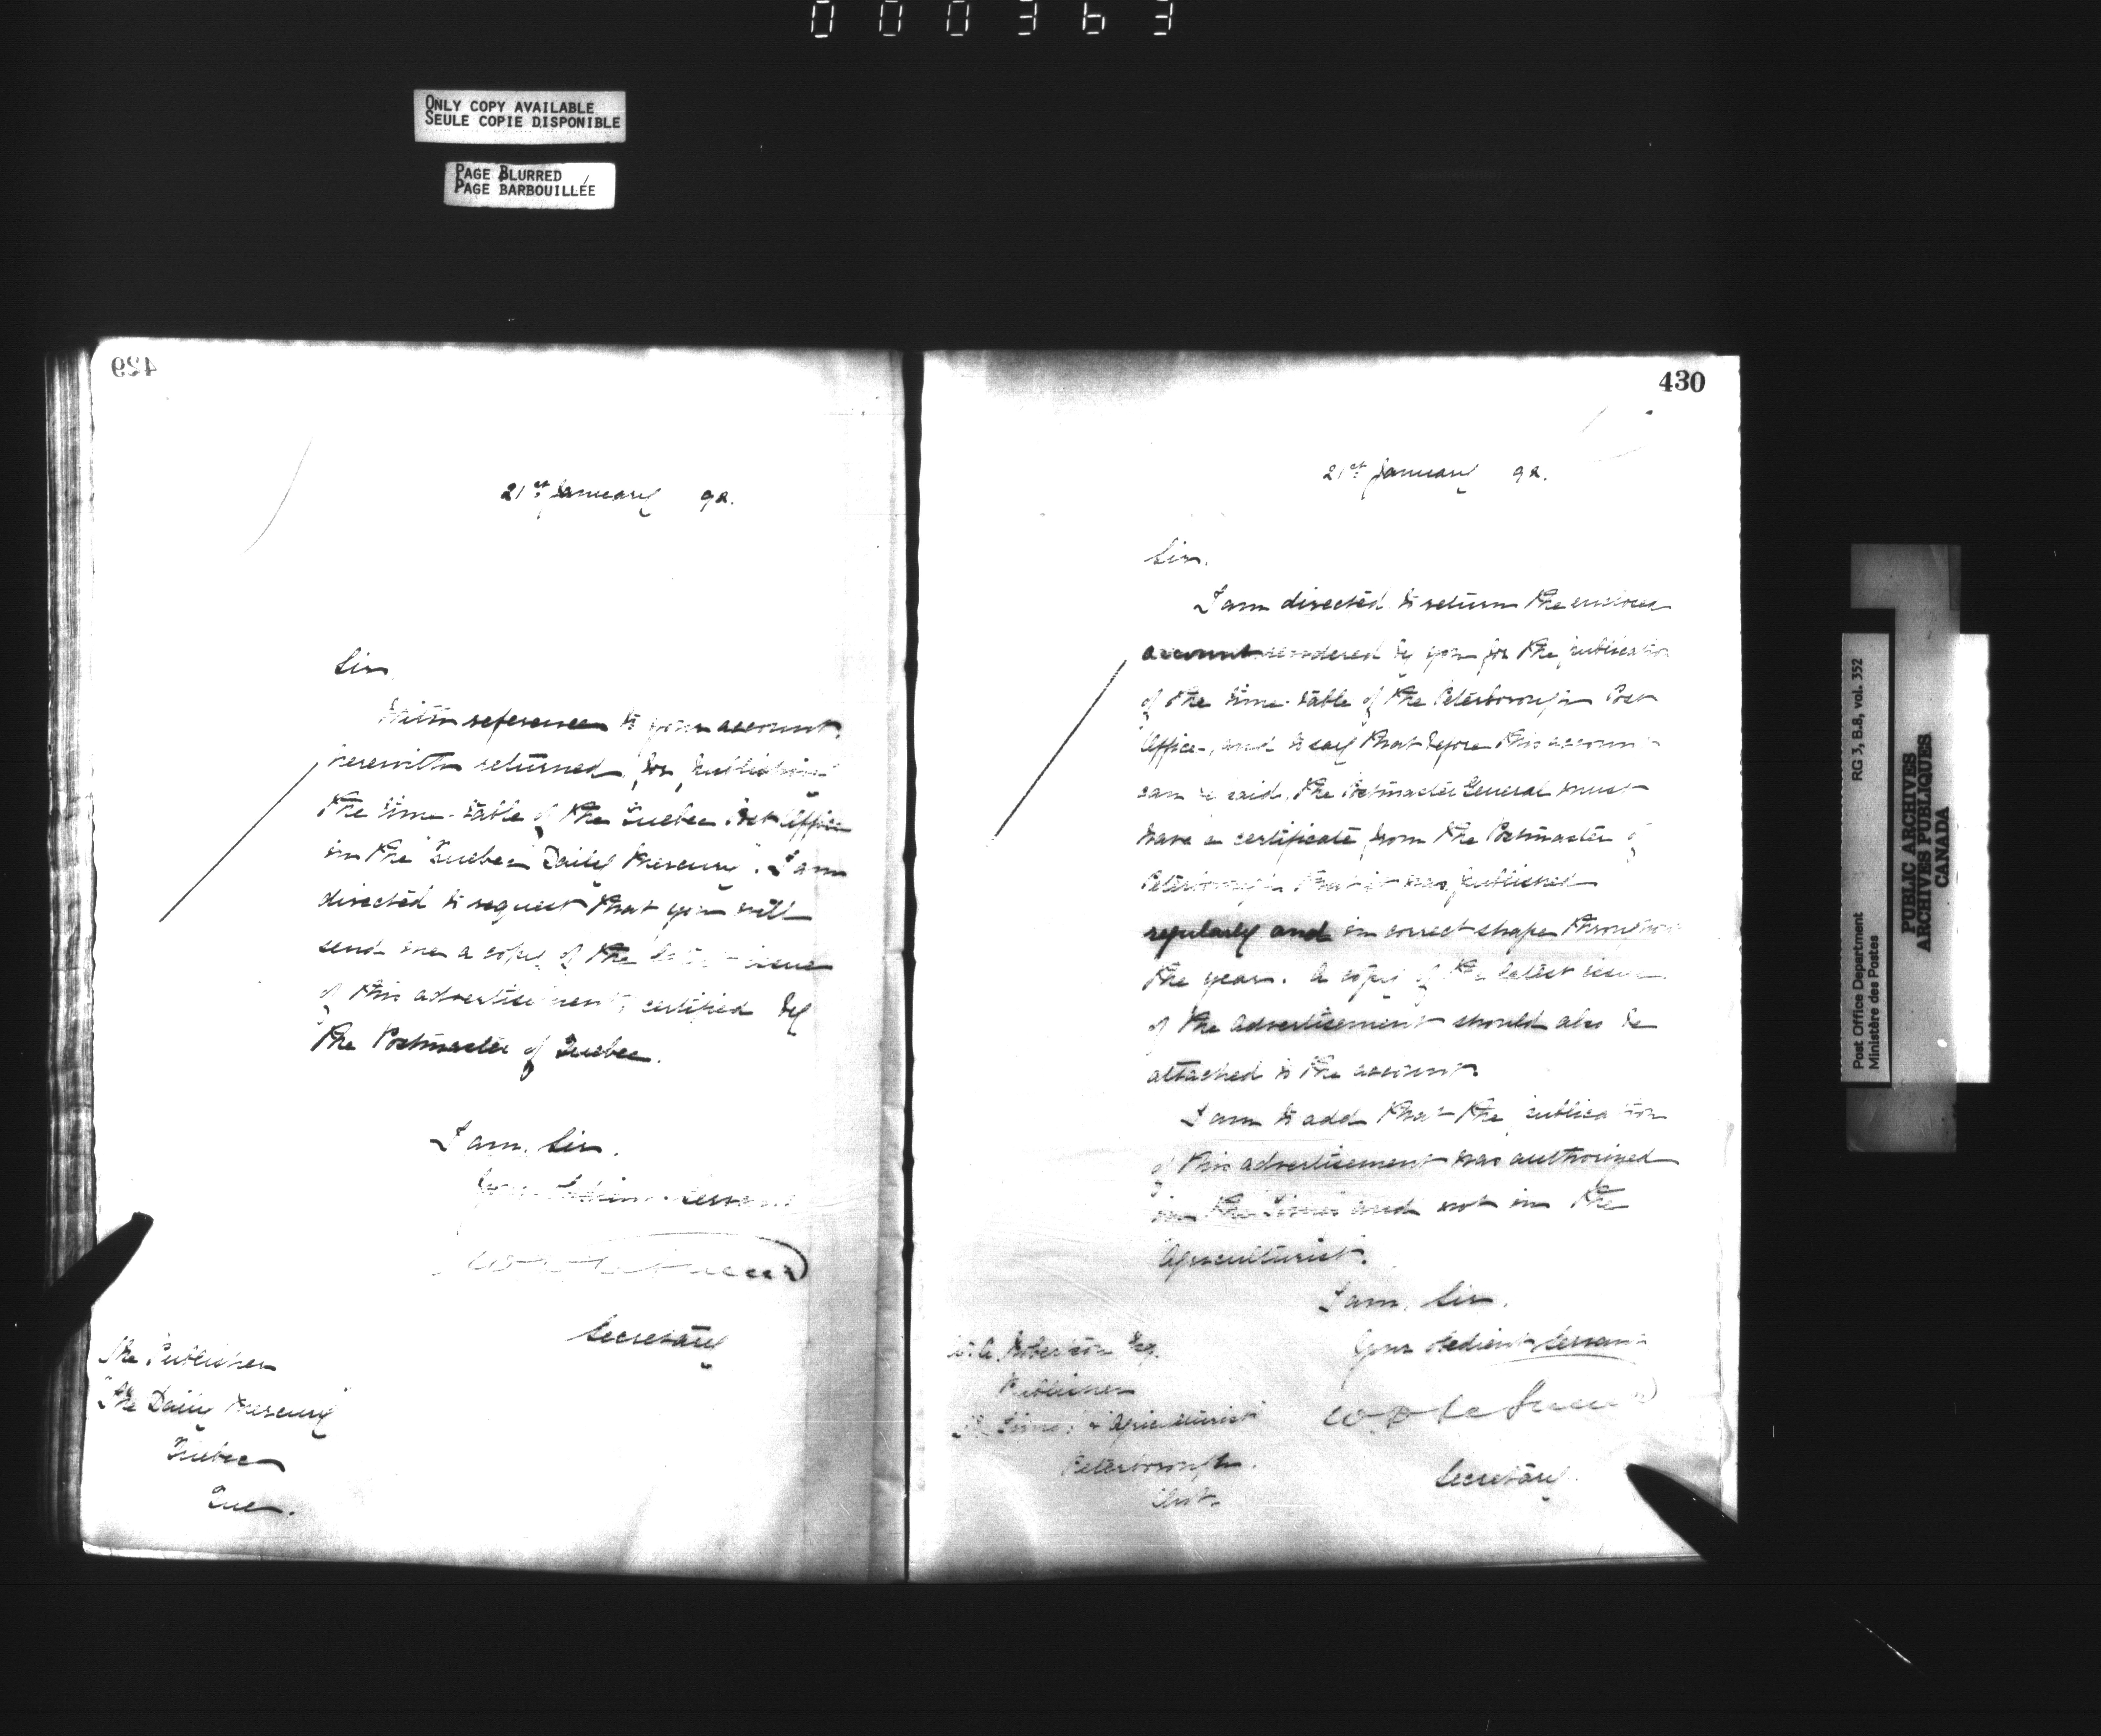 000363
ONLY COPY AVAILABLE
SEULE COPIE DISPONIBLE
PAGE BLURRED
PAGE BARBOUILLÉE
429
21st January 92.
Sir
With reference to your account,
herewith returned, for publishing
the time-table of the Quebec Post Office
in the "Quebec Daily Mercury". I am
directed to request that you will
send me a copy of the latest issue
of this advertisement, certified by
the Postmaster of Quebec.
I am, Sir,
Your Obedient Servant
Secretary
The Publisher
"The Daily Mercury"
Quebec
Que.
430
21st January 92.
Sir,
I am directed to return the enclosed
account rendered by you for the publication
of the time-table of the Peterborough Post
Office, and to say that before this account
can be paid, the Postmaster General must
have a certificate from the Postmaster of
Peterborough that it was published
regularly and in correct shape throughout
the year. A copy of the latest issue
of the advertisement should also be
attached to the account.
I am to add that the publication
of this advertisement was authorized
in the Times and not in the
Agriculturist.
I am, Sir,
Your obedient Servant
Secretary
Robertson Esq.
Publisher
Times & Agriculturist
Peterborough.
Ont.
Post Office Department
Ministère des Postes
RG 3, B.8, vol. 352
PUBLIC ARCHIVES
ARCHIVES PUBLIQUES
CANADA